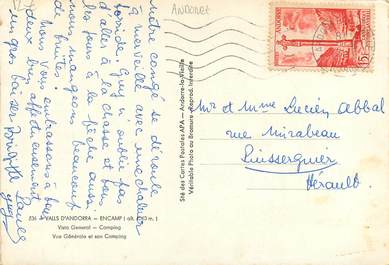 ANDORRE
notre congé se déroule
à merveille avec une chaleur
torride. Guy n'oublie pas
d'aller à la chasse et tous
les jours à la pêche aussi.
nous mangeons beaucoup
de truites.
Nous vous embrassons à tous
deux bien affectueusement
un gros baiser
Guy
836 - VALLS D'ANDORRA - ENCAMP (alt. m.)
Vista General - Camping
Vue Générale et son Camping
Sté des Cartes Postales APA - Andorre-la-Vieille
Véritable Photo au Bromure - Reprod. Interdite
ANDORRA
15
Mr et Mme Lucien Abbal
rue Mirabeau
Puisserguier
Hérault